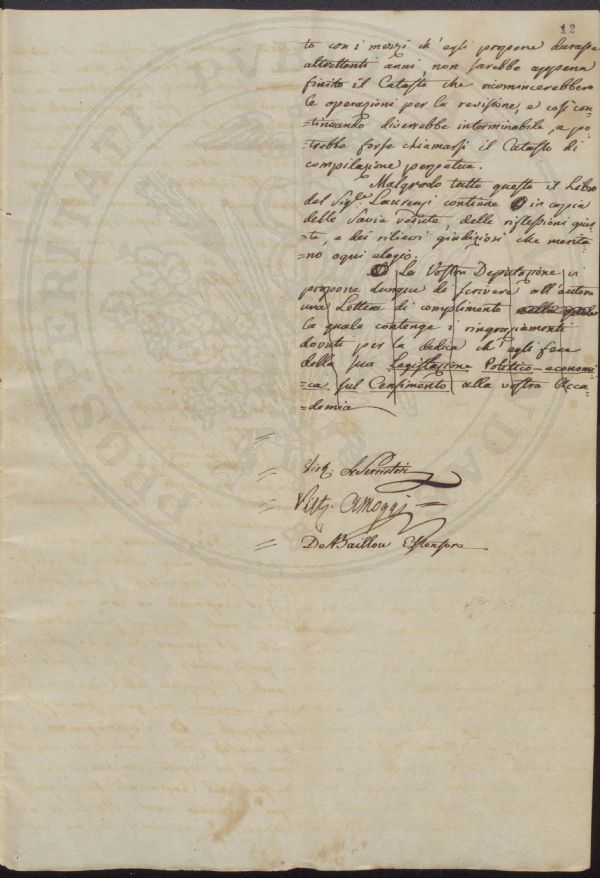 12
to con i mezzi ch' egli propone durasse
altrettanti anni non sarebbe appena
finito il Catasto, che ricomincerebbero
le operazioni per la revisione, e così con-
=tinuando diverrebbe interminabile, e po-
=trebbe forse chiamarsi il Catasto di
compilazione perpetua.
Malgrado tutto questo il Libro
del Sig.re Laurenzi contiene in copia
delle Savie vedute, delle riflessioni gius-
=te, e dei rilievi giudiziosi che merita-
=no ogni elogio.
La Vostra Deputazione vi
propone dunque di scrivere all' autore
una Lettera di complimento nella quale
la quale contenga i ringraziamenti
dovuti per la dedica ch' egli fece
della sua Legislazione Politico-economi-
=ca sul Censimento alla vostra Acca-
=demia
=
=
= 
= De Baillou Estensore
PROSPERITATI PUBLICAE